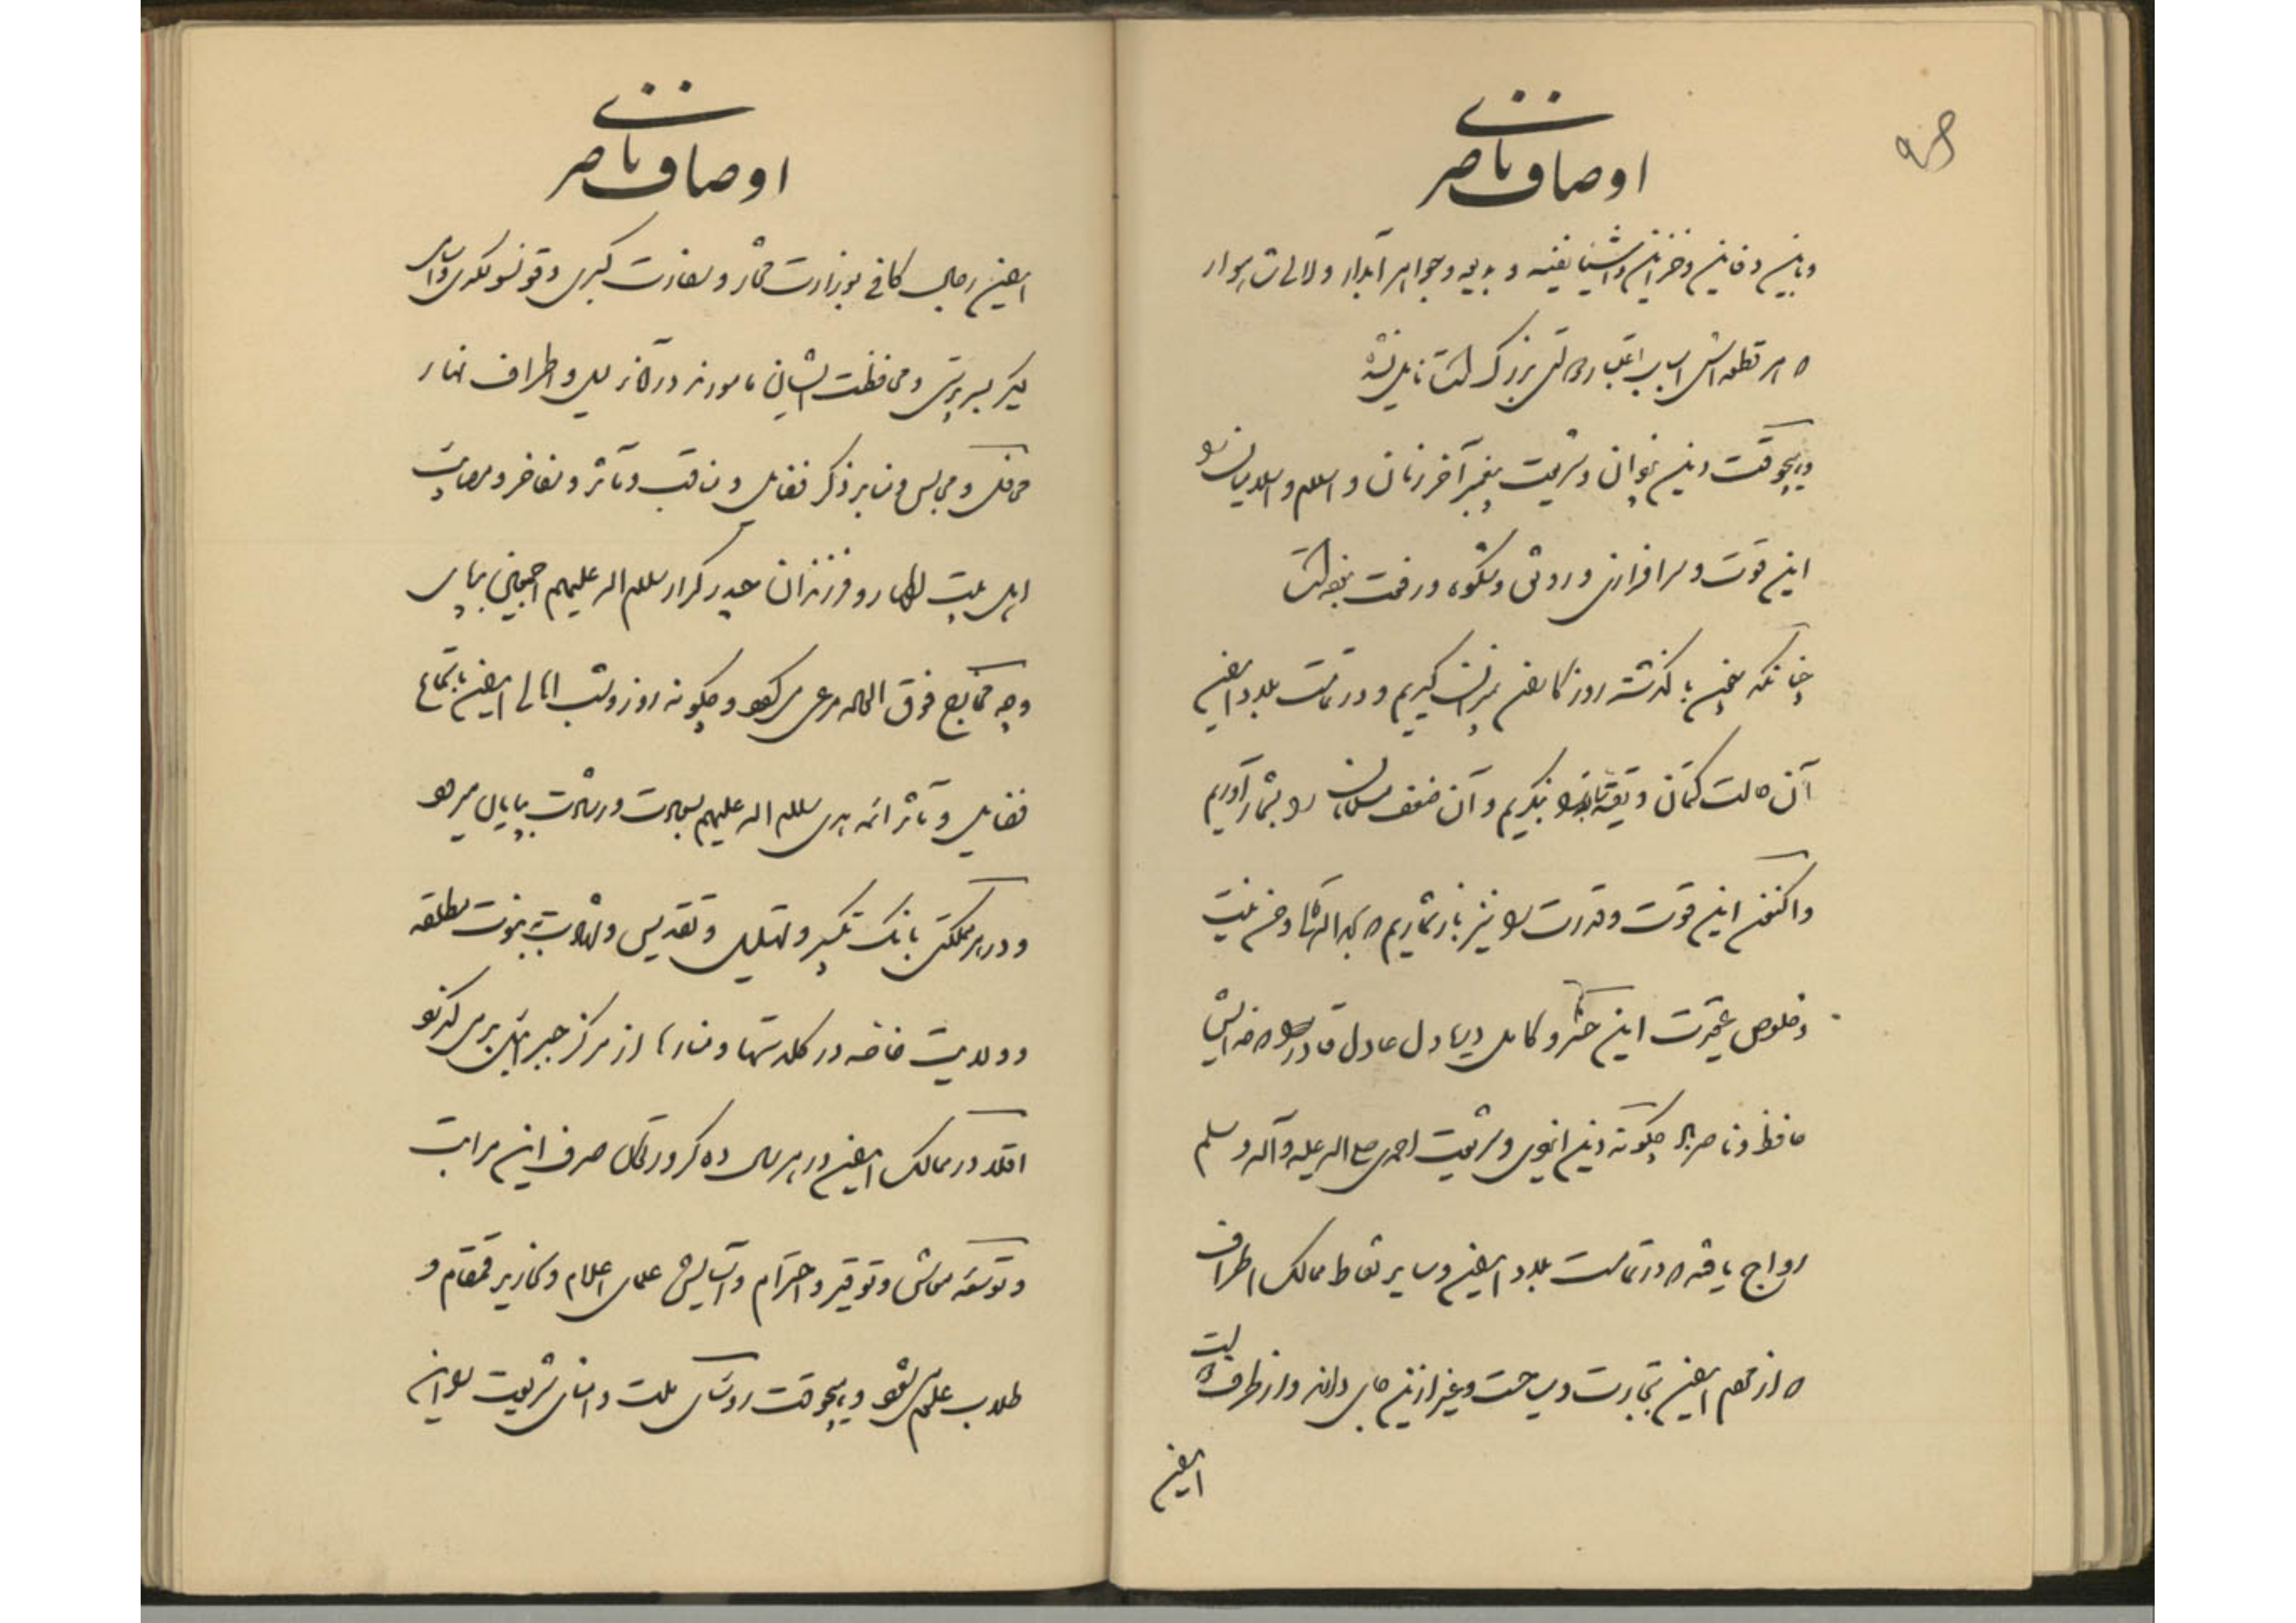 اوصاف ناصری
و باین دفاین و خزاین و اشیاء نفیسه و بدیعه و جواهر آبدار و لالی شاهوار
که هر قطعه‌اش اسباب اعتبار دولتی بزرگ است نایل نشده
و بهیچوقت دین یزدان و شریعت پیغمبر آخر زمان و اسلام و اسلامیان را
این قوت و سرافرازی و رونق و شکوه و رفعت نبوده است
چنانکه چون با گذشته روزگار ایران میزان گیریم و در تمامت بلاد ایران
آن حالت کتمان و تقیه را بنگریم و آن ضعف مسلمانان را بشمار آوریم
و اکنون این قوت و قدرت را نیز باز شماریم که بحمدالله از حسن نیت
و خلوص عقیدت این خسرو کامل دریا دل عادل قادر که خدایش
حافظ و ناصر باد چگونه دین نبوی و شریعت احمدی صلی الله علیه و آله و سلم
رواج یافته که در تمامت بلاد ایران و سایر نقاط ممالک اطراف
که از مردم ایران بتجارت و سیاحت و غیر از این جای دارند و از طرف دولت
ایران
اوصاف ناصری
ایران رجال کافی بوزارت مختار و سفارت کبری و قونسولگری و
دیگر بسرپرستی و محافظت ایشان مامورند در آناء لیل و اطراف نهار
محافل و مجالس و منابر ذکر فضایل و مناقب و مآثر و مفاخر و مصایب
اهل بیت اطهار و فرزندان حیدر کرار سلام الله علیهم اجمعین بپای
و چه مخارج فوق العاده مرعی میگردد و چگونه روز و شب اهالی ایران باستماع
فضایل و مآثر ائمه هدی سلام الله علیهم بپایان میرود
و در هر مملکتی بانگ تکبیر و تهلیل و تقدیس و شهادت بنبوت مطلقه
و ولایت خاصه در گلدسته‌ها و منارها از مرکز جبرائیل برمی‌گذرد
اقلا در ممالک ایران در هر سال ده کرور تومان صرف این مراتب
و توسعه معاش و توقیر و احترام و آسایش علمای اعلام و نحاریر قمقام و
طلاب علوم میشود و بهیچوقت رؤسای ملت و امنای شریعت را در ایران